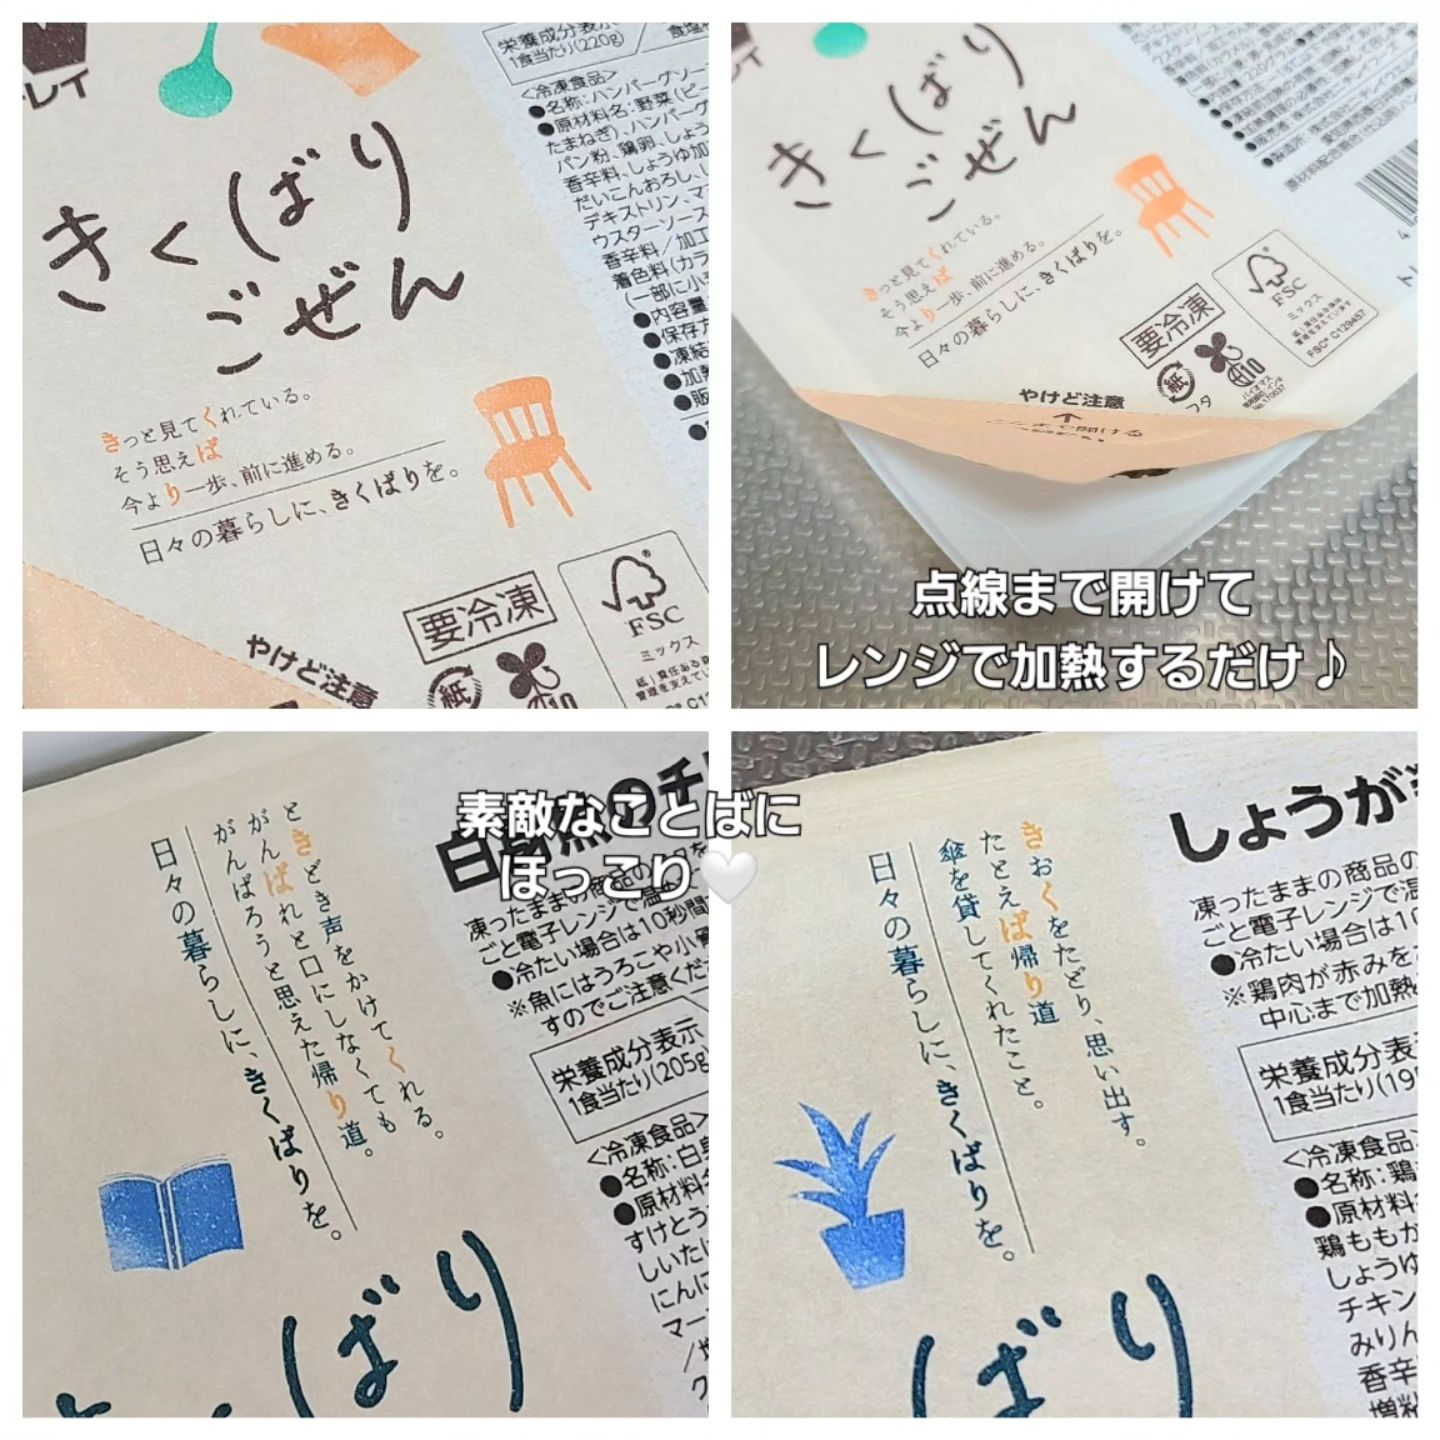 トレイ
きくばり
ごぜん
きっと見てくれている。
そう思えば
今より一歩、前に進める。
日々の暮らしに、きくばりを。
やけど注意
要冷凍
紙
FSC
ミックス
栄養成分表示
1食当たり(220g)
<冷凍食品>
●名称:ハンバーグソー
●原材料名:野菜(ピー
たまねぎ)、ハンバーグ
パン粉、鶏卵、しょう
香辛料、しょうゆ加
だいこんおろし、し
デキストリン、マ
ウスターソース
香辛料/加工
着色料(カラ
(一部に小
●内容量
●保存方
●凍結
●加熱
●販
きくばり
ごぜん
きっと見てくれている。
そう思えば
今より一歩、前に進める。
日々の暮らしに、きくばりを。
要冷凍
FSC
ミックス
FSC® C129457
紙
フタ
バイオマス
No.170037
やけど注意
ここまで開ける
点線まで開けて
レンジで加熱するだけ♪
素敵なことばに
ほっこり🤍
ときどき声をかけてくれる。
がんばれと口にしなくても
がんばろうと思えた帰り道。
日々の暮らしに、きくばりを。
ばり
凍ったままの商品の
ごと電子レンジで温め
●冷たい場合は10秒間
※魚にはうろこや小骨
すのでご注意くだ
栄養成分表示
1食当たり(205g
<冷凍食品>
●名称:白身
●原材料名
すけとう
しいた
にんに
マー
きおくをたどり、思い出す。
たとえば帰り道
傘を貸してくれたこと。
日々の暮らしに、きくばりを。
ばり
しょうが
凍ったままの商品の
ごと電子レンジで温
●冷たい場合は10
※鶏肉が赤みを
中心まで加熱
栄養成分表
1食当たり(19
<冷凍食品
●名称:鶏
●原材料
鶏ももか
しょうゆ
チキン
みりん
香辛
増粘